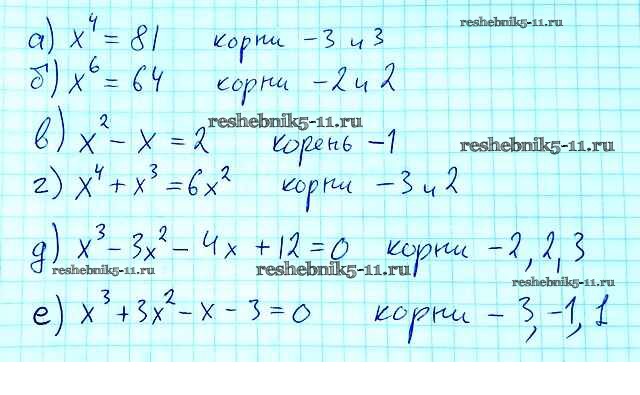 reshebnik5-11.ru
а) x⁴ = 81 корни -3 и 3
б) x⁶ = 64 корни -2 и 2
reshebnik5-11.ru
в) x² - x = 2 корень -1
reshebnik5-11.ru
г) x⁴ + x³ = 6x² корни -3 и 2
д) x³ - 3x² - 4x + 12 = 0 корни -2, 2, 3
reshebnik5-11.ru
reshebnik5-11.ru
reshebnik5-11.ru
е) x³ + 3x² - x - 3 = 0 корни -3, -1, 1